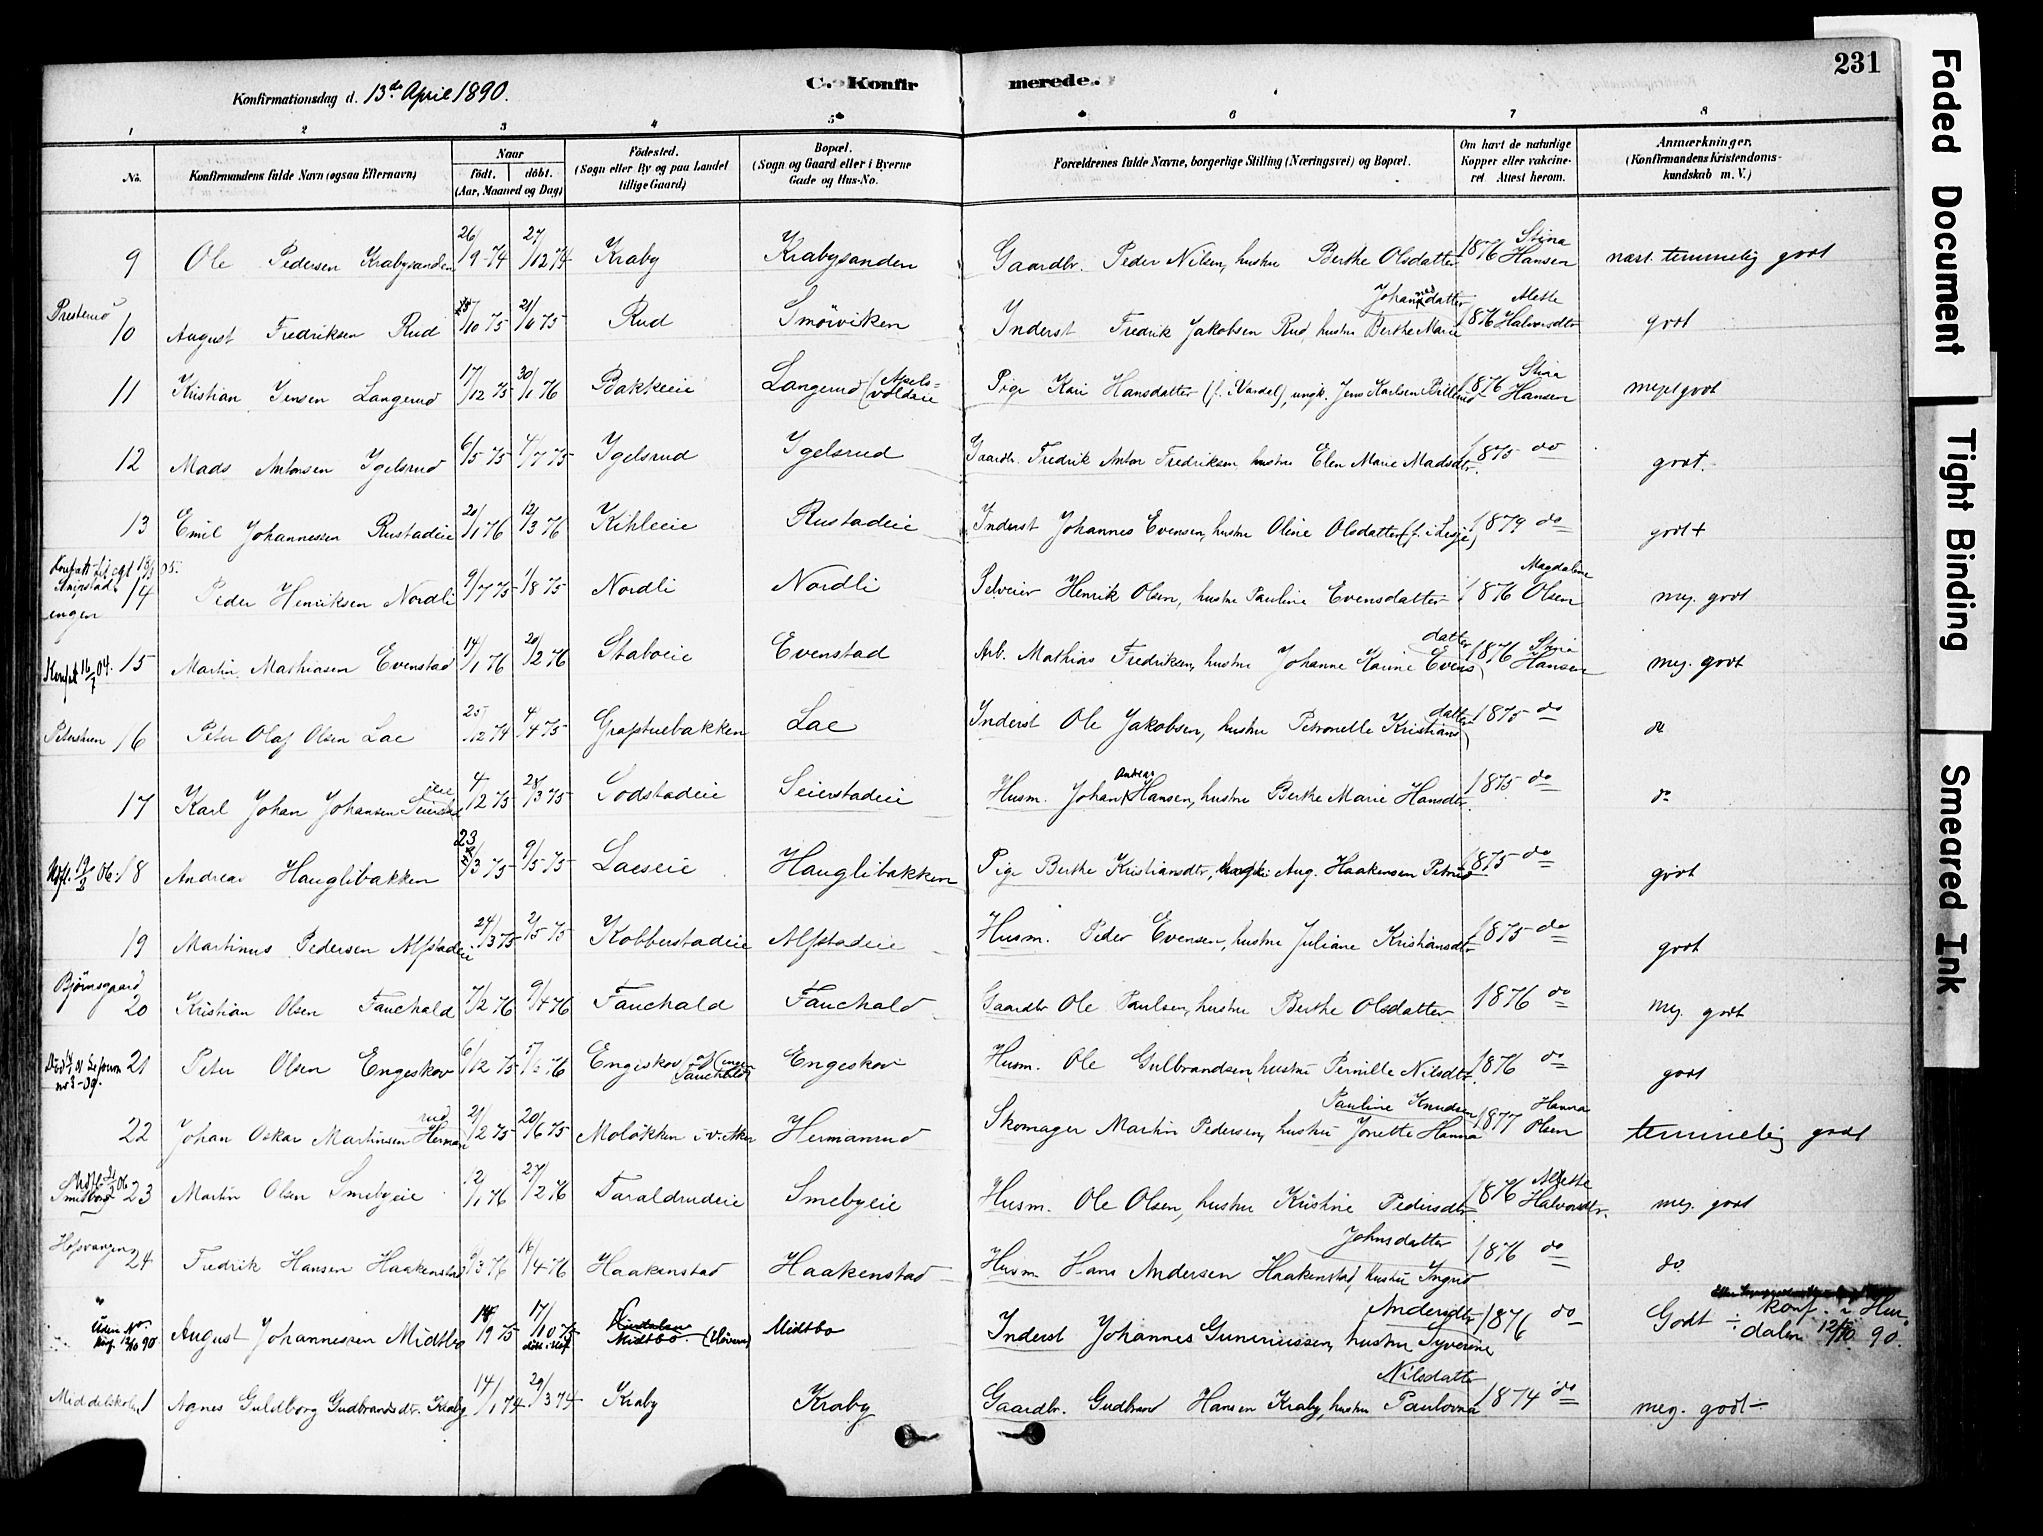 231
Konfirmationsdag d. 13de April 1890. C. Konfirmerede.
1 2 3 4 5 6 7 8
No. Konfirmandens fulde Navn (ogsaa Efternavn) Naar født. døbt. (Aar, Maaned og Dag) Fødested. (Sogn eller By og paa Landet tillige Gaard) Bopæl. (Sogn og Gaard eller i Byerne Gade og Hus-No. Forældrenes fulde Navne, borgerlige Stilling (Næringsvei) og Bopæl. Om havt de naturlige Kopper eller vakcineret Attest herom. Anmærkninger, (Konfirmandens Kristendomskundskab m. V.)
9 Ole Pedersen Krabysanden 26/9 74 27/12 74 Kraby Krabysanden Gaardbr. Peder Nilsen, hustru Berthe Olsdatter 1876 Stina Hansen næst. temmelig godt
10 August Fredriksen Rud /10 75 21/6 75 Rud Smörviken Inderst Fredrik Jakobsen Rud, hustru Berthe Marie Johannesdatter 1876 Alette Halvorsdtr godt
11 Kristian Jensen Langerud 17/12 75 30/1 76 Bakkeeie Langerud (Apelsvoldeie Pige Kari Hansdatter (f. i Vardal), ungk. Jens Karlsen Billerud 1876 Stina Hansen meget godt
12 Mads Antonsen Ygelsrud 6/5 75 4/7 75 Ygelsrud Ygelsrud Gaardbr. Fredrik Anton Fredriksen hustru Elen Marie Madsdtr. 1875 do godt.
13 Emil Johannessen Rustadeie 20/1 76 12/3 76 Kihleeie Rustadeie Inderst Johannes Evensen, hustru Oline Olsdatter (f. i Lesje) 1879 do godt+
engen 14 Peder Henriksen Nordli 9/7 75 1/8 75 Nordli Nordli Selveier Henrik Olsen, hustru Pauline Evensdatter 1876 Magdalene Olsen meg. godt
16/7 04. 15 Martin Mathiasen Evenstad 14/1 76 20/2 76 Staboeie Evenstad Arb. Mathias Fredriksen, hustru Johanne Karine Evensdatter 1876 Stina Hansen meg. godt
16 Peter Olaf Olsen Lae 25/12 74 4/4 75 Grapstuebakken Lae Inderst Ole Jakobsen, hustru Petronelle Kristiansdatter 1875 do do.
17 Karl Johan Johansen 4/2 75 28/3 75 Sodstadeie Seierstadeie Husm. Johan Andreas Hansen, hustru Berthe Marie Hansdtr. 1875 do do
19/2 06. 18 Andreas Hauglibakken 23/3 75 9/5 75 Laeseie Hauglibakken Pige Berthe Kristiansdtr, Aug. Haakensen Petrud 1875 do godt
19 Martinus Pedersen Alfstadeie 24/3 75 2/5 75 Kobberstadeie Alfstadeie Husm. Peder Evensen, hustru Juliane Kristiansdtr 1875 do godt
Bjørnsgaard 20 Kristian Olsen Fauchald 7/2 76 9/4 76 Fauchald Fauchald Gaardbr Ole Paulsen, hustru Berthe Olsdatter 1876 do meg. godt
21 Peter Olsen Engeskov 6/12 75 76 Engeskov Engeskov Husm. Ole Gulbrandsen, hustru Pernille Nilsdtr. 1876 do godt
22 Johan Oskar Martinsen Hermanrud 21/2 75 20/6 75 Molökken i V. Aker Hermanrud Skomager Martin Pedersen, hustru Jonette Hanna Pauline Knudsen 1877 Hanna Olsen temmelig godt
23 Martin Olsen Smebyeie 2/1 76 27/2 76 Taraldrudeie Smebyeie Husm. Ole Olsen, hustru Kristine Pedersdtr. 1876 Alette Halvorsdtr. meg. godt
Hofsvangen 24 Fredrik Hansen Haakenstad 9/3 76 16/4 76 Haakenstad Haakenstad Husm Hans Andersen Haakenstad, hustru Ingrid Johnsdatter 1876 do do.
12/10 90 August Johannessen Midtbø /9 75 17/10 75 Midtbø Inderst Johannes Gunerinssen, hustru Syverine Andersdtr 1876 do Godt ÷ konf. i Hurdalen 12/10 90.
Middelskolen 1 Agnes Guldborg Gudbrandsdtr. Kraby 14/1 74 29/3 74 Kraby Kraby Gaardbr. Gudbrand Hansen Kraby, hustru Paulovna Nilsdatter 1874 do meg. godt ÷
Faded Document
Tight Binding
Smeared Ink